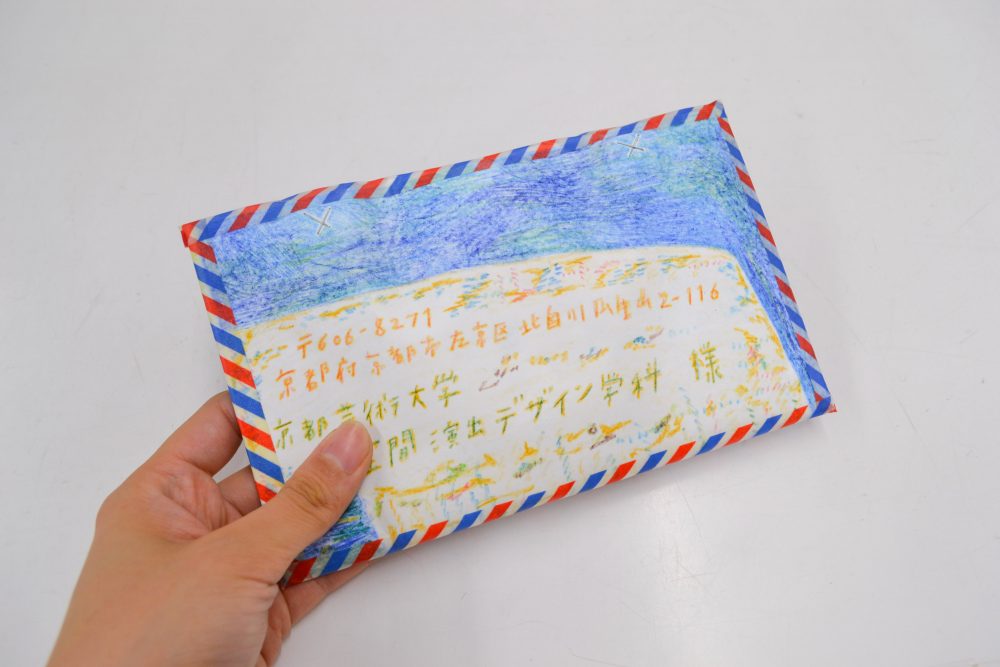 〒606-8271
京都府京都市左京区北白川瓜生山2-116
京都芸術大学
空間演出デザイン学科 様